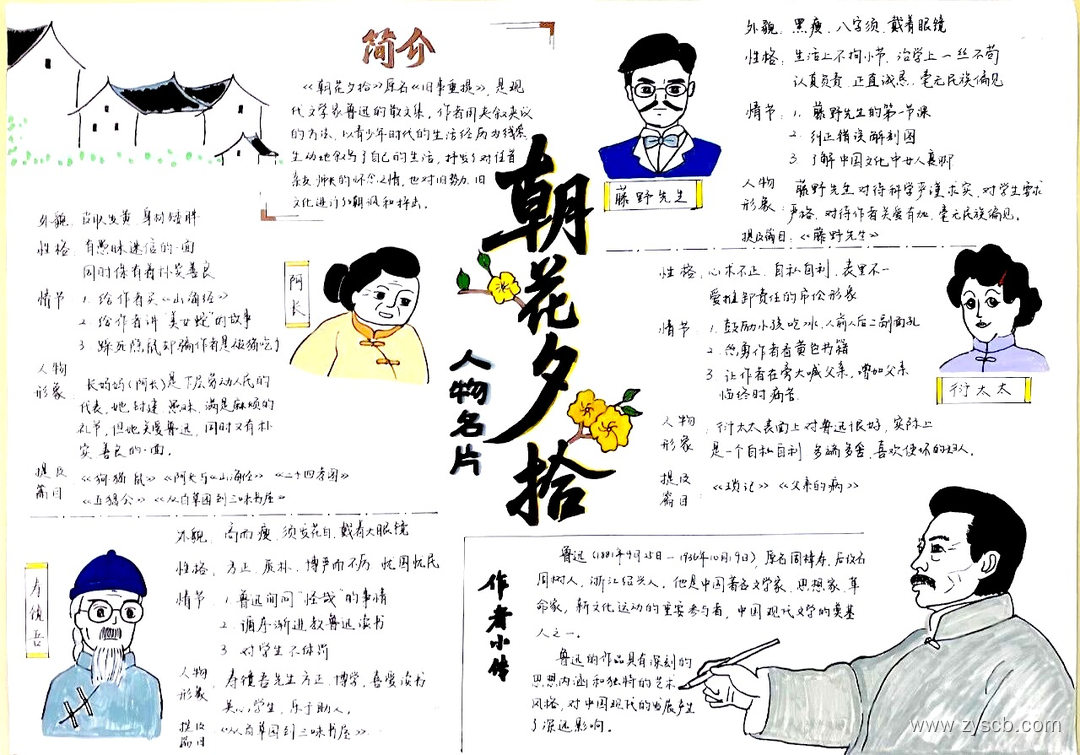 简介
《朝花夕拾》原名《旧事重提》,是现
代文学家鲁迅的散文集。作者用夹叙夹议
的方法,以青少年时代的生活经历为线索
生动地叙写了自己的生活,抒发了对往昔
亲友、师长的怀念之情,也对旧势力、旧
文化进行了嘲讽和抨击。
朝花夕拾
人物名片
外貌:黑瘦、八字须、戴着眼镜
性格:生活上不拘小节,治学上一丝不苟
认真负责,正直诚恳,毫无民族偏见
情节:1. 藤野先生的第一节课
2. 纠正错误解剖图
3. 了解中国文化中女人裹脚
人物形象 藤野先生对待科学严谨求实,对学生要求
严格,对待作者关爱有加,毫无民族偏见。
提及篇目:《藤野先生》
藤野先生
外貌:身材矮胖
性格:有愚昧迷信的一面
同时保有着朴实善良
情节 1. 给作者买《山海经》
2. 给作者讲"美女蛇"的故事
3. 踩死隐鼠却骗作者是被猫吃了
人物形象 长妈妈(阿长)是下层劳动人民的
代表,她封建、愚昧、满是麻烦的
礼节,但她关爱鲁迅,同时又有朴
实善良的一面。
提及篇目 《狗·猫·鼠》《阿长与《山海经》》《二十四孝图》
《五猖会》《从百草园到三味书屋》
阿长
性格:心术不正、自私自利、表里不一
爱推卸责任的市侩形象
情节 1. 鼓励小孩吃冰,人前人后二副面孔
2. 怂勇作者看黄色书籍
3 让作者在旁大喊父亲,增加父亲
临终时痛苦
人物形象:衍太太表面上对鲁迅很好,实际上
是一个自私自利、多端多舌、喜欢使坏的妇人。
提及篇目:《琐记》《父亲的病》
衍太太
外貌:高而瘦,须发花白,戴着大眼镜
性格:方正、质朴、博学而不厉、忧国忧民
情节 1. 鲁迅询问"怪哉"的事情
2. 循序渐进教鲁迅读书
3 对学生不体罚
人物形象 寿镜吾先生方正、博学、喜爱读书
关心学生,乐于助人。
提及篇目 《从百草园到三味书屋》
寿镜吾
作者小传
鲁迅(1881年9月25日—1936年10月19日)原名周樟寿,后改名
周树人,浙江绍兴人。他是中国著名文学家、思想家、革
命家,新文化运动的重要参与者,中国现代文学的奠基
人之一。
鲁迅的作品具有深刻的
思想内涵和独特的艺术
风格,对中国现代的发展产生
了深远影响。
www.zyscb.com